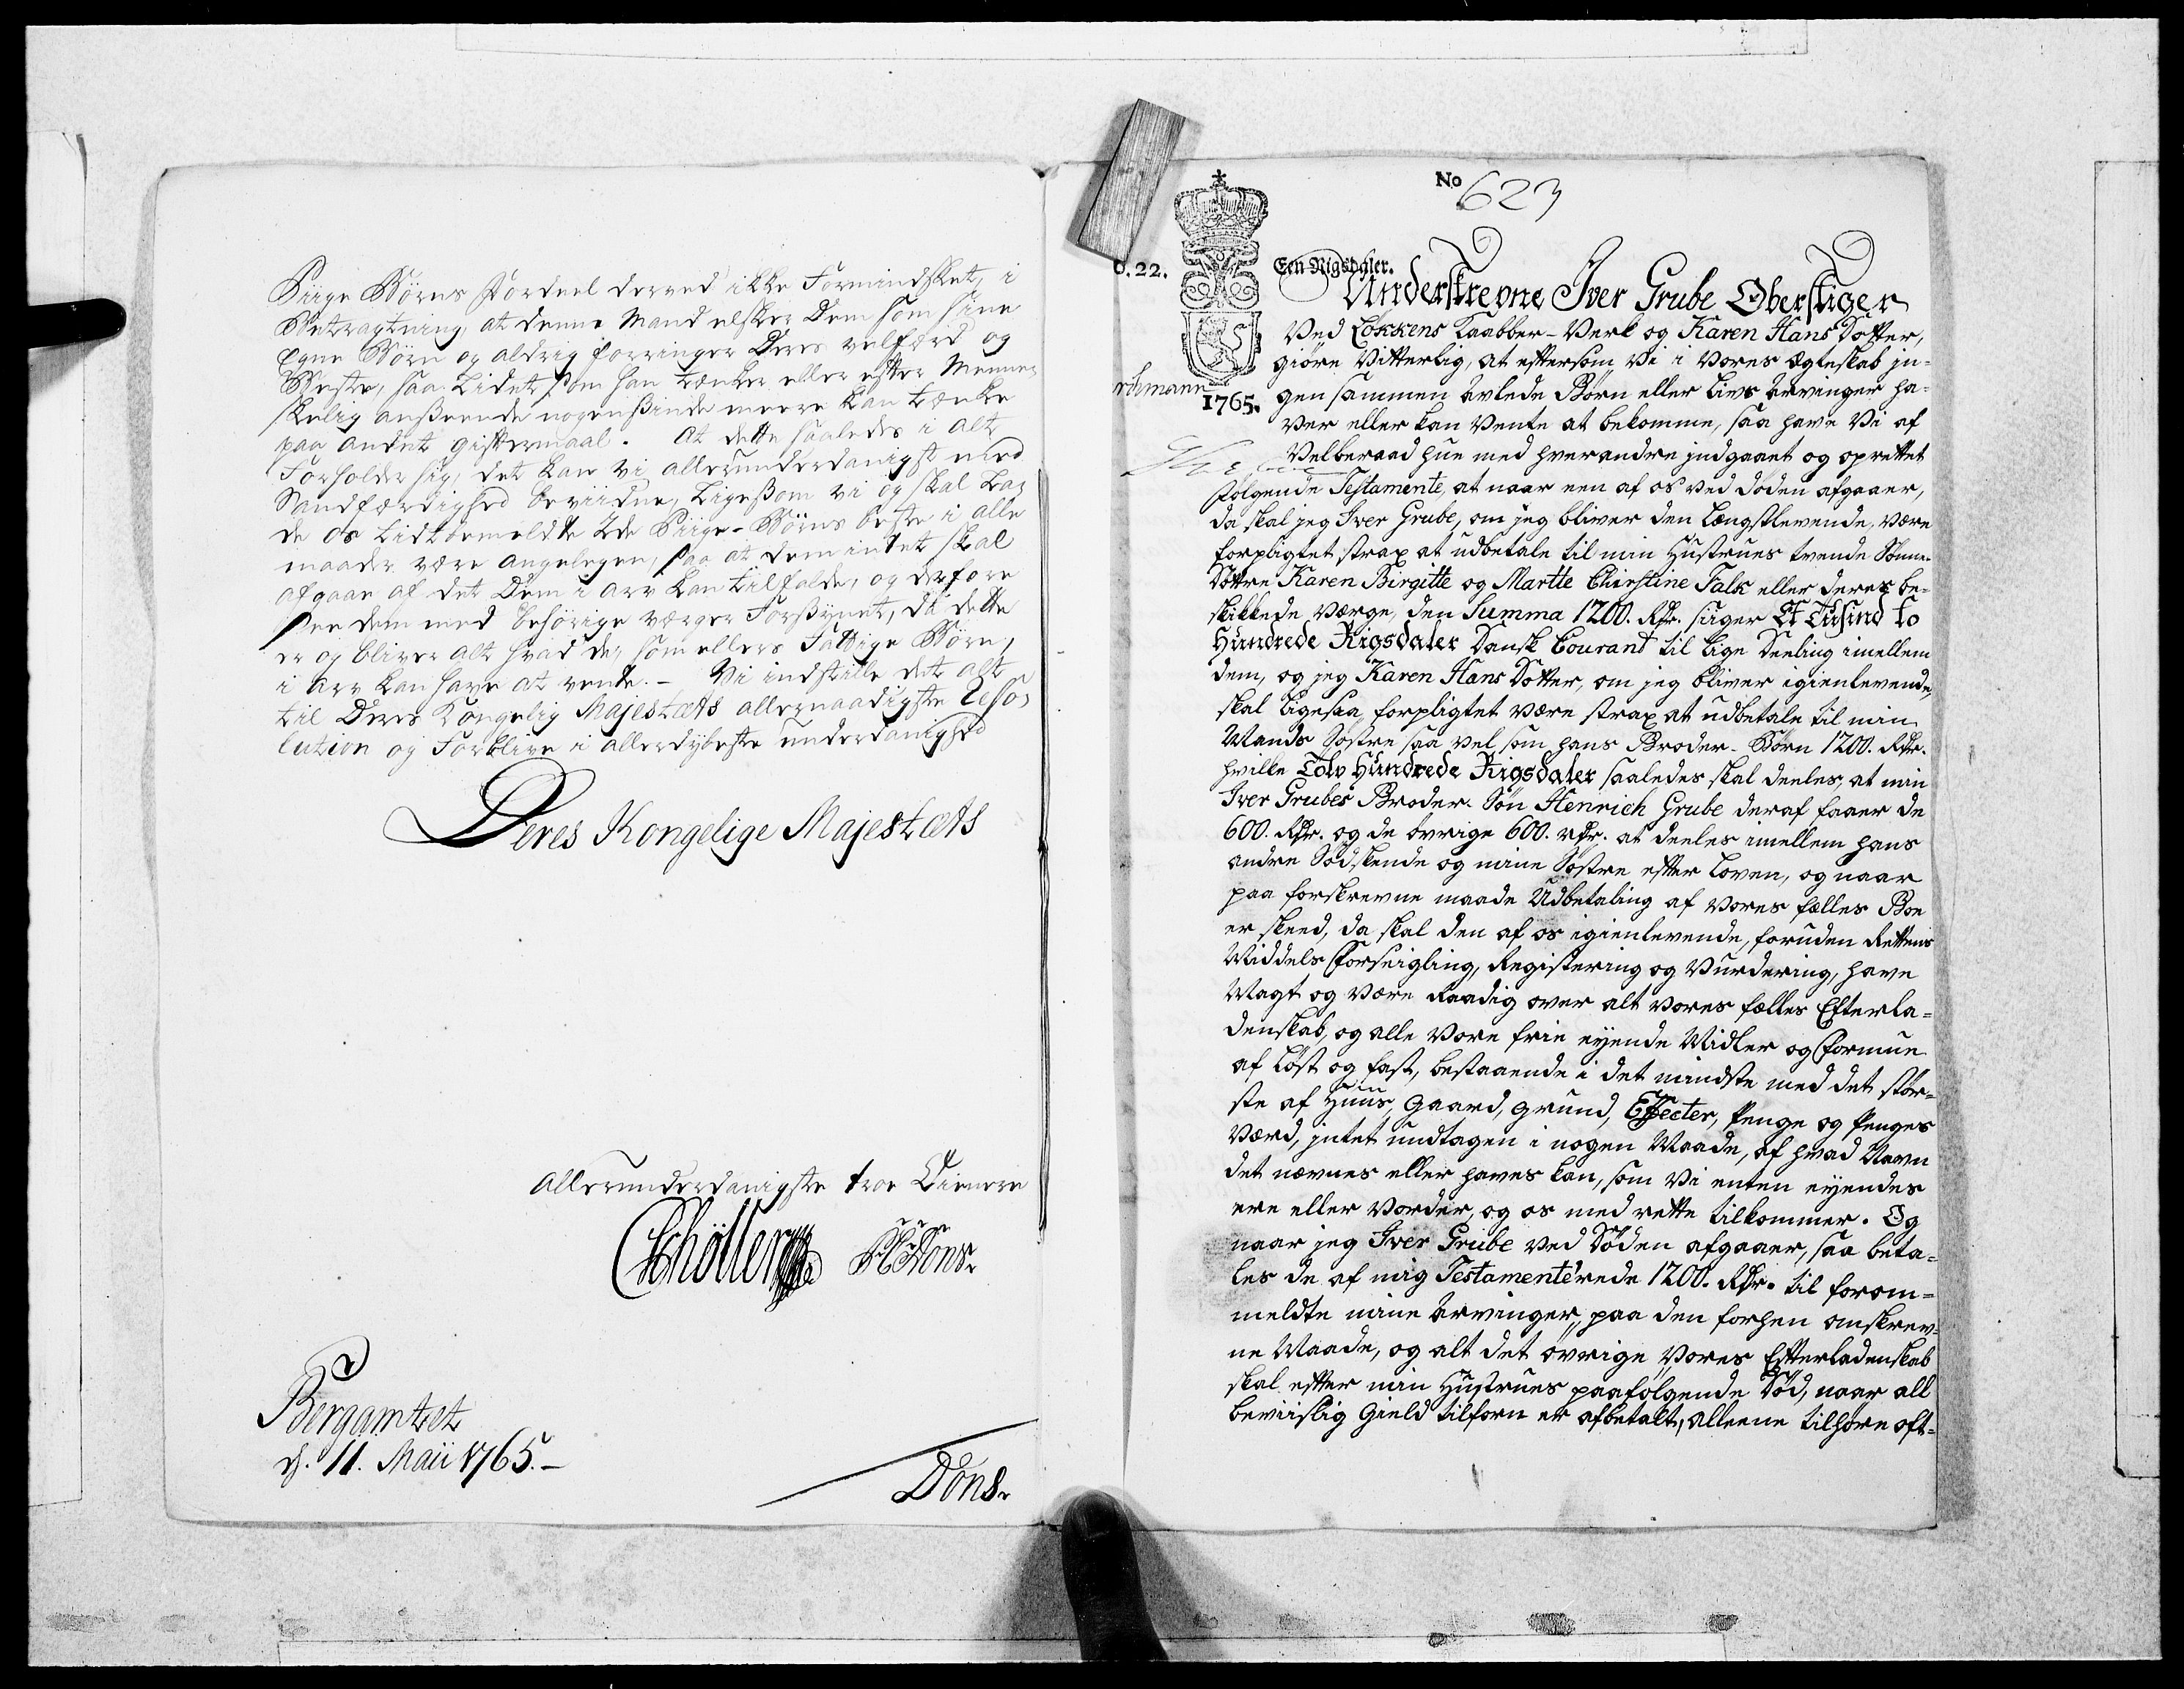 Piige Börns Fordeel derved ikke Formindsket, i
Betragtning, at denne Mand elsker Dem som sine
Egne Börn og aldrig forringer Deres velfærd og
Beste, saa Lidet som han tænker eller efter Menne-
skelig anseende nogensinde meere kan tænke
paa andet Giftermaal. At dette saaledes i alt
Forholder sig, det kan vi allerunderdanigst med
Sandfærdighed beviidne, Ligesom vi og skal La-
de os bidbemeldte 2de Piige-Börns beste i alle
maader være angelegen, saa at dem intet skal
afgaae af det Dem i arv kan tilfalde, og derfore
see dem med behörige værger Forsÿnet, da dette
er og bliver alt hvad de, som ellers Fattige Börn,
i Arv kan have at vente. - Vi indstille det alt
til Deres Kongelig Majestæts allernaadigste Reso-
lution og Forblive i allerdÿbeste underdanighed
Deres Kongelige Majestæts
Allerunderdanigste troe Tienere
Schöller
Bergamtet
d. 11. Maii 1765.-
Dons.
No 623
6.22.
Een Rigsdaler.
1765.
Underskrevne Iver Grube Oberstiger
Ved Løkkens Kaabber-Verk og Karen Hans Dotter,
giöre Vitterlig, at eftersom Vi i Vores Ægteskab in-
gen sammen avlede Börn eller Livs Arvinger ha-
ver eller kan Vente at bekomme, saa have Vi af
Velberaad Hue med hverandre indgaaet og oprettet
fölgende Testamente, at naar een af os ved Döden afgaaer,
da skal jeg Iver Grube, om jeg bliver den Længstlevende, være
forpligtet strax at udbetale til min Hustrues tvende Sönne-
Döttre Karen Birgitte og Marthe Chirstine Falk eller deres be-
skikkede Værge, den Summa 1200. Rdr. siger Et Tusind to
Hundrede Rigsdaler Dansk Courant til Lige Deeling imellem
dem, og jeg Karen Hans Dotter, om jeg bliver igienlevende,
skal Ligesaa forpligtet være strax at udbetale til min
Mands Söstre saa vel som hans Broder-Börn 1200. Rdr.
hvilke Tolv Hundrede Rigsdaler saaledes skal deeles, at min
Iver Grubes Broder-Sön Henrich Grube deraf faaer de
600. Rdr. og de övrige 600. rdr. at deeles imellem hans
andre Södskende og mine Söstre efter Loven, og naar
paa forskrevne maade Udbetaling af vores fælles Boe
er skeed, da skal den af os igienlevende, foruden Rettens
Middels Forseigling, Registering og Vurdering, have
Magt og være Raadig over alt vores fælles Efterla-
denskab, og alle Vore frie eÿende Midler og Formue
af Löst og fast, bestaaende i det mindste med det stör-
ste af Huus, Gaard, Grund, Effecter, Penge og Penges
Værd, intet undtagen i nogen Maade, af hvad Navn
det nævnes eller haves kan, som Vi enten eÿendes
ere eller Vorder, og os med rette tilkommer. Og
naar jeg Iver Grube ved Döden afgaaer, saa beta-
les de af mig Testamenterede 1200. Rdr. til forom-
meldte mine Arvinger, paa den forhen omskrev-
ne Maade, og alt det övrige Vores Efterladenskab
skal efter min Hustrues paafölgende Död, naar all
beviislig Gield tilforn er afbetalt, alleene tilhöre oft-